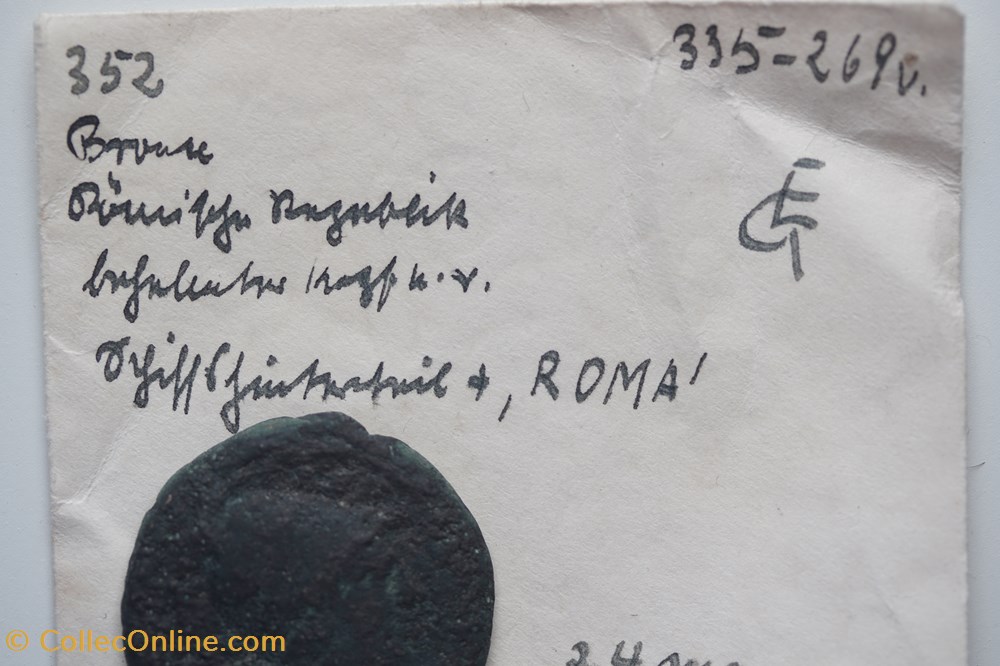 352
335-269 v.
Bronze
Römische Republik
behelmter Kopf n. r.
Schiffshinterteil +, ROMA'
24 mm
© CollecOnline.com